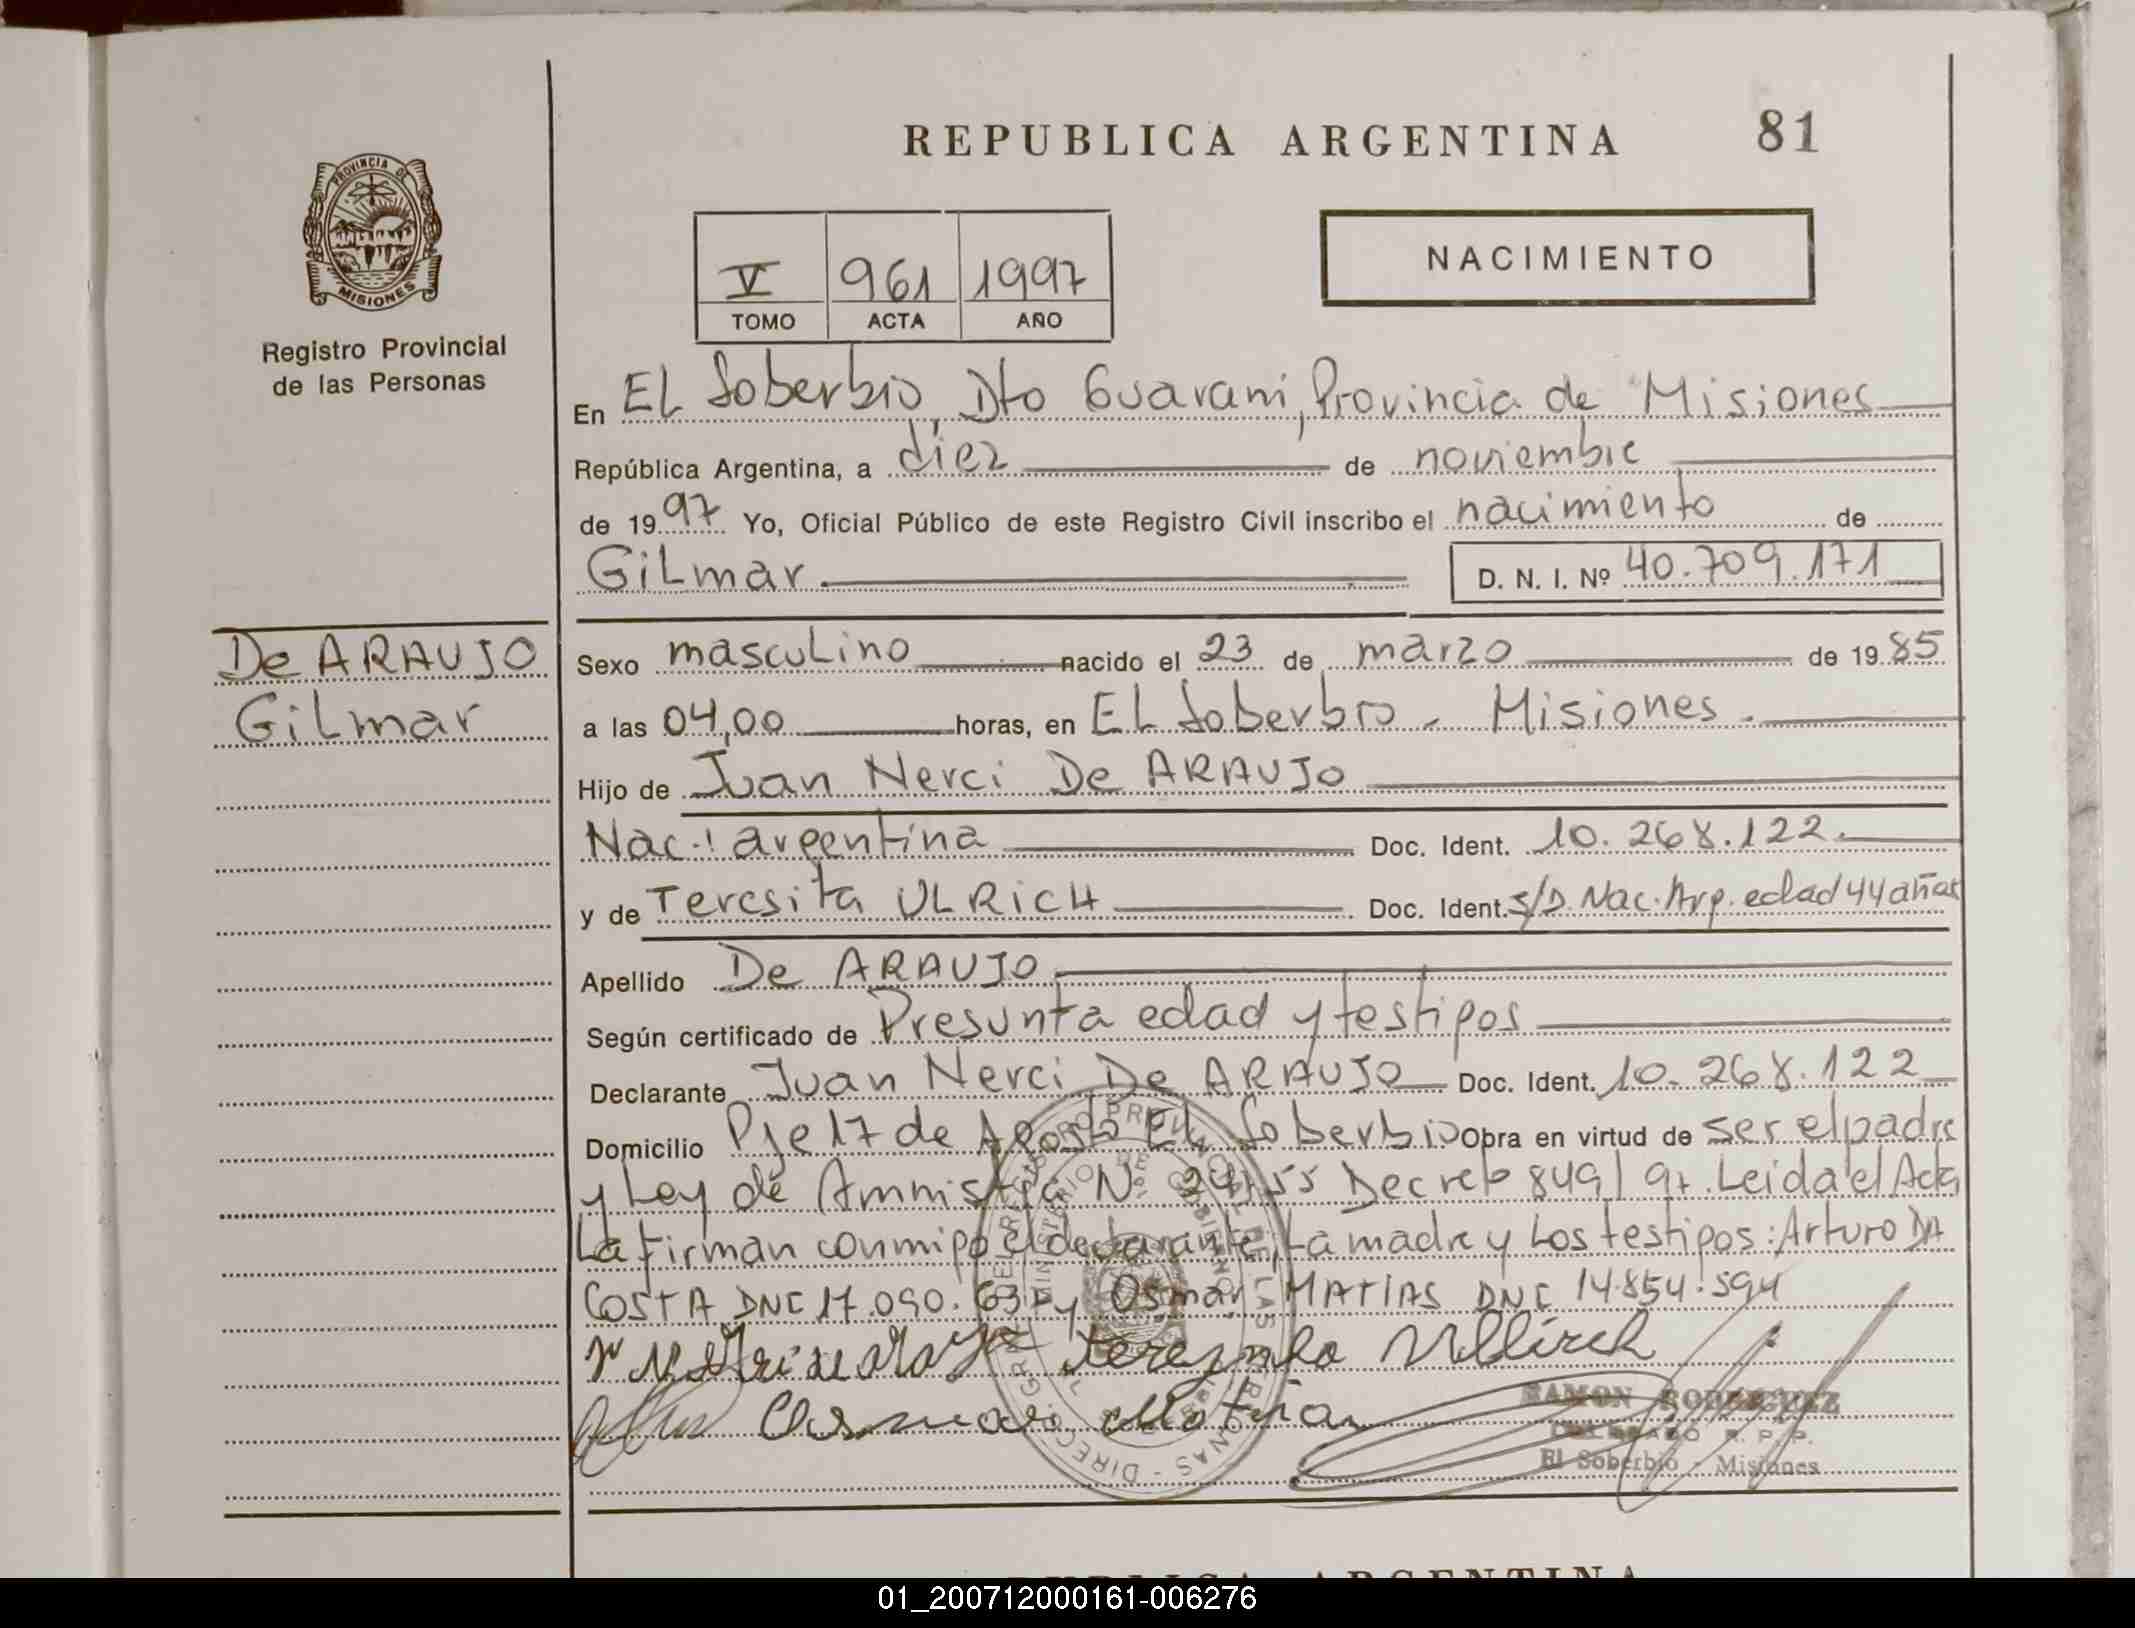 REPUBLICA ARGENTINA 81
PROVINCIA DE MISIONES
Registro Provincial
de las Personas
V 961 1997
TOMO ACTA AÑO
NACIMIENTO
En EL Soberbio, Dto Guarani, Provincia de Misiones
República Argentina, a diez de noviembre
de 1997 Yo, Oficial Público de este Registro Civil inscribo el nacimiento de
GiLmar D. N. I. Nº 40.709.171
De ARAUJO
GiLmar
Sexo mascuLino nacido el 23 de marzo de 1985
a las 04,00 horas, en EL Soberbio - Misiones.
Hijo de Juan Nerci De ARAUJO
Nac.: argentina Doc. Ident. 10.268.122.
y de Teresita ULRICH Doc. Ident. S/D. Nac. Arg. edad 44 años
Apellido De ARAUJO
Según certificado de Presunta edad y testigos
Declarante Juan Nerci De ARAUJO Doc. Ident. 10.268.122
Domicilio Pje 17 de Agosto EL Soberbio Obra en virtud de ser el padre
y Ley de Amnistia Nº 24755 Decreto 849/97. Leida el Acta
La firman conmigo el declarante, La madre y Los testigos: Arturo DA
COSTA DNI 17.090. y Osmar MATIAS DNI 14.854.594
Osmar Matias
RAMON RODRIGUEZ
DELEGADO R. P. P.
El Soberbio - Misiones
REPUBLICA ARGENTINA
01_200712000161-006276